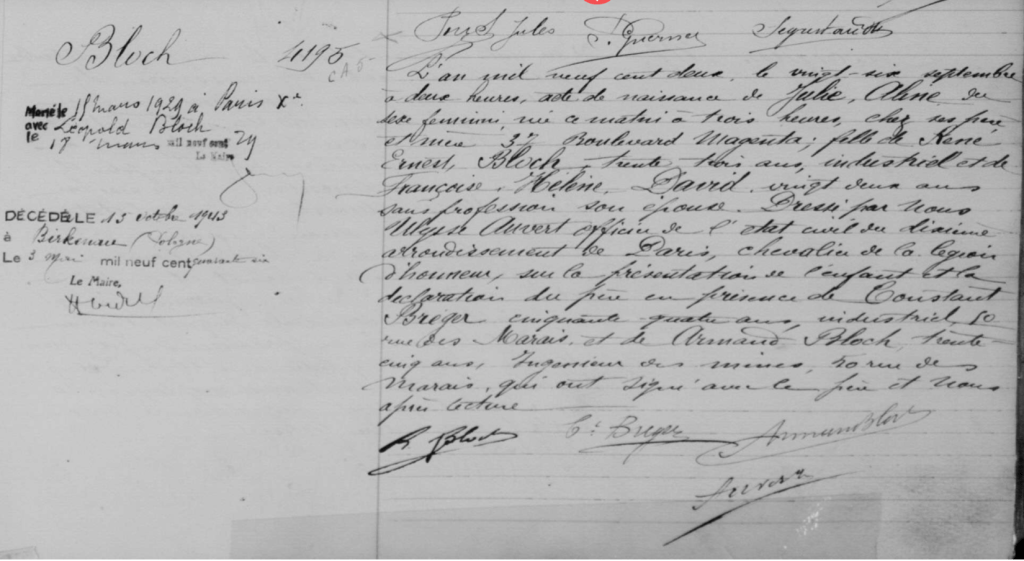 Bloch
4195
Marié le 11 mars 1929 à Paris Xe
avec Léopold Bloch
le 17 mars mil neuf cent 29
Le Maire
DÉCÉDÉ LE 13 octobre 1943
à Birkenau (Pologne)
Le 3 mai mil neuf cent quarante six
Le Maire,
Jules
L'an mil neuf cent deux, le vingt-six septembre
à deux heures, acte de naissance de Julie, Aline du
sexe féminin, née ce matin à trois heures, chez ses père
et mère 37 Boulevard Magenta; fille de René
Ernest, Bloch, trente trois ans, industriel et de
Françoise, Hélène, David, vingt deux ans
sans profession son épouse. Dressé par Nous
Ulysse Auvert officier de l'état civil du dixième
arrondissement de Paris, chevalier de la légion
d'honneur, sur la présentation de l'enfant et la
déclaration du père en présence de Constant
Breger cinquante quatre ans, industriel, 50
rue des Marais, et de Armand Bloch, trente
cinq ans, Ingénieur des mines, 50 rue des
Marais, qui ont signé avec le père et Nous
après lecture
R. Bloch
Ct Breger
Armand Bloch
Auvert